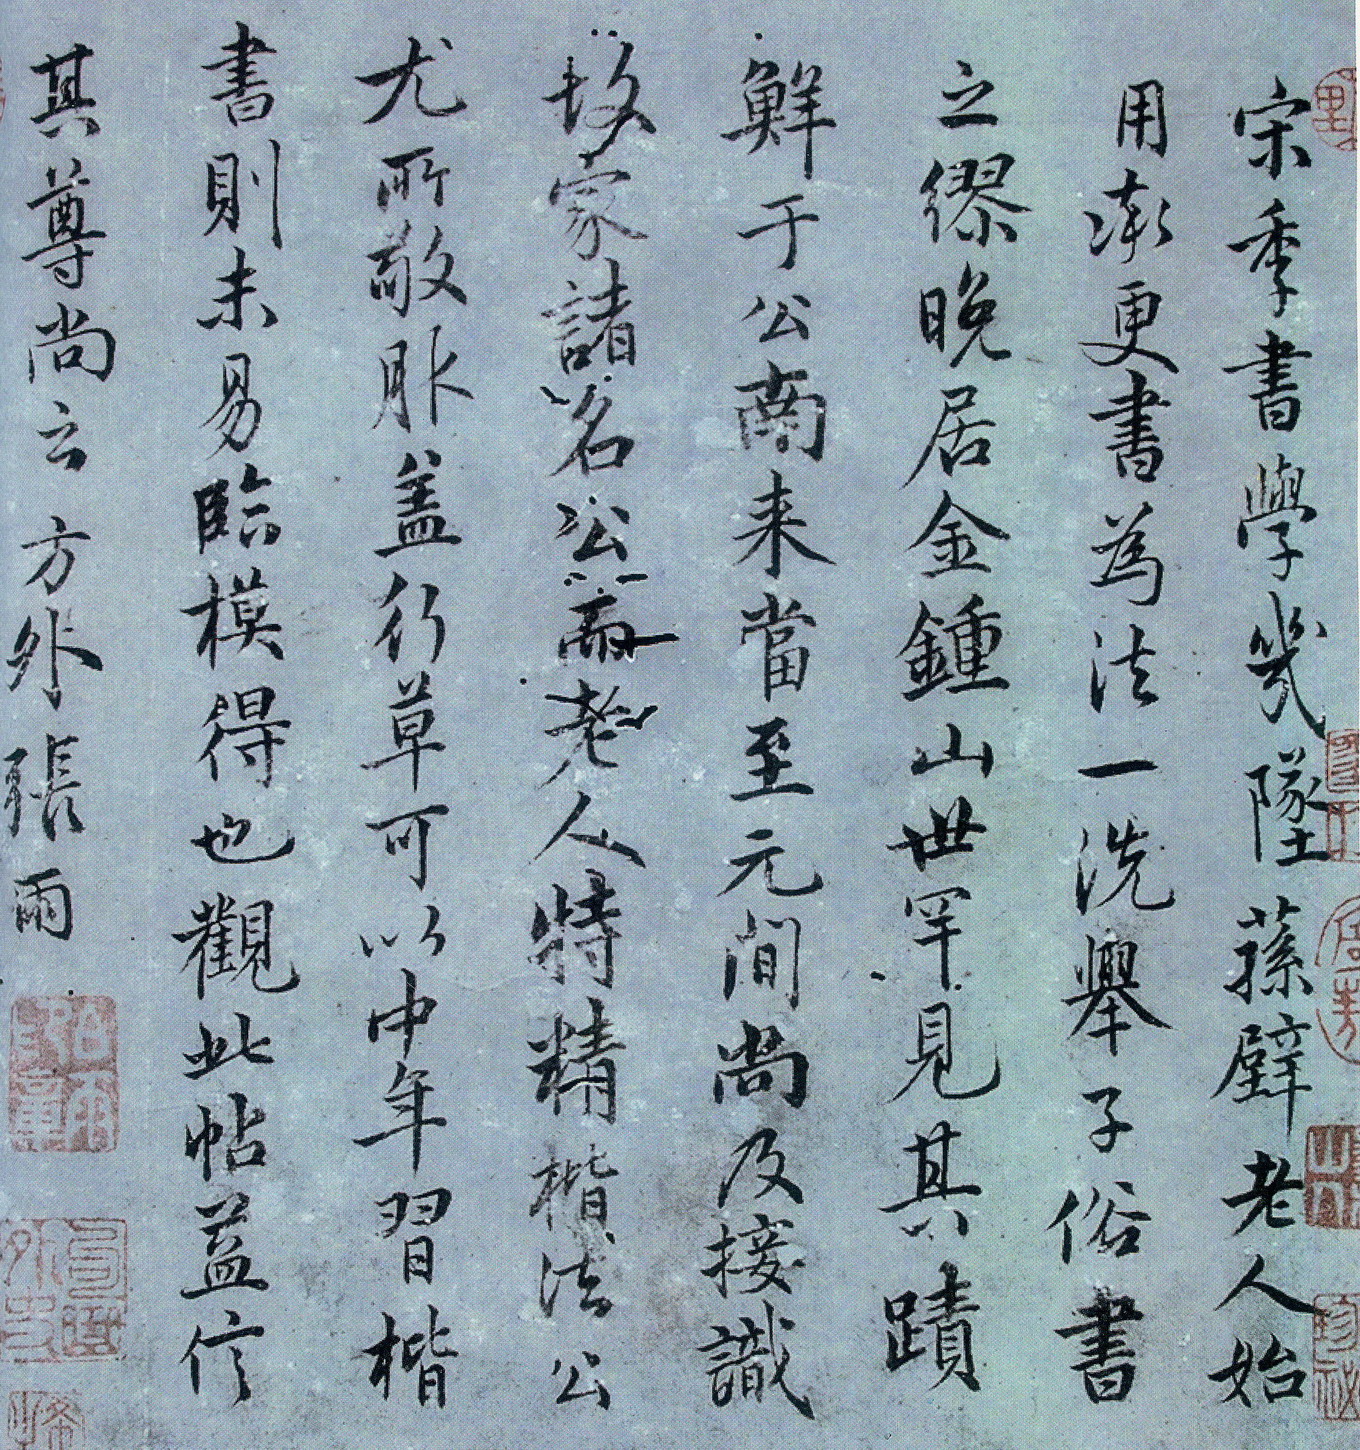 宋季書學幾墜蓀壁老人始
用漸更書為法一洗舉子俗書
之繆晚居金鍾山世罕見其蹟
鮮于公南来當至元間尚及接識
故家諸名公而老人特精楷法公
尤所敬服盖行草可以中年習楷
書則未易臨模得也觀此帖益信
其尊尚云方外張雨